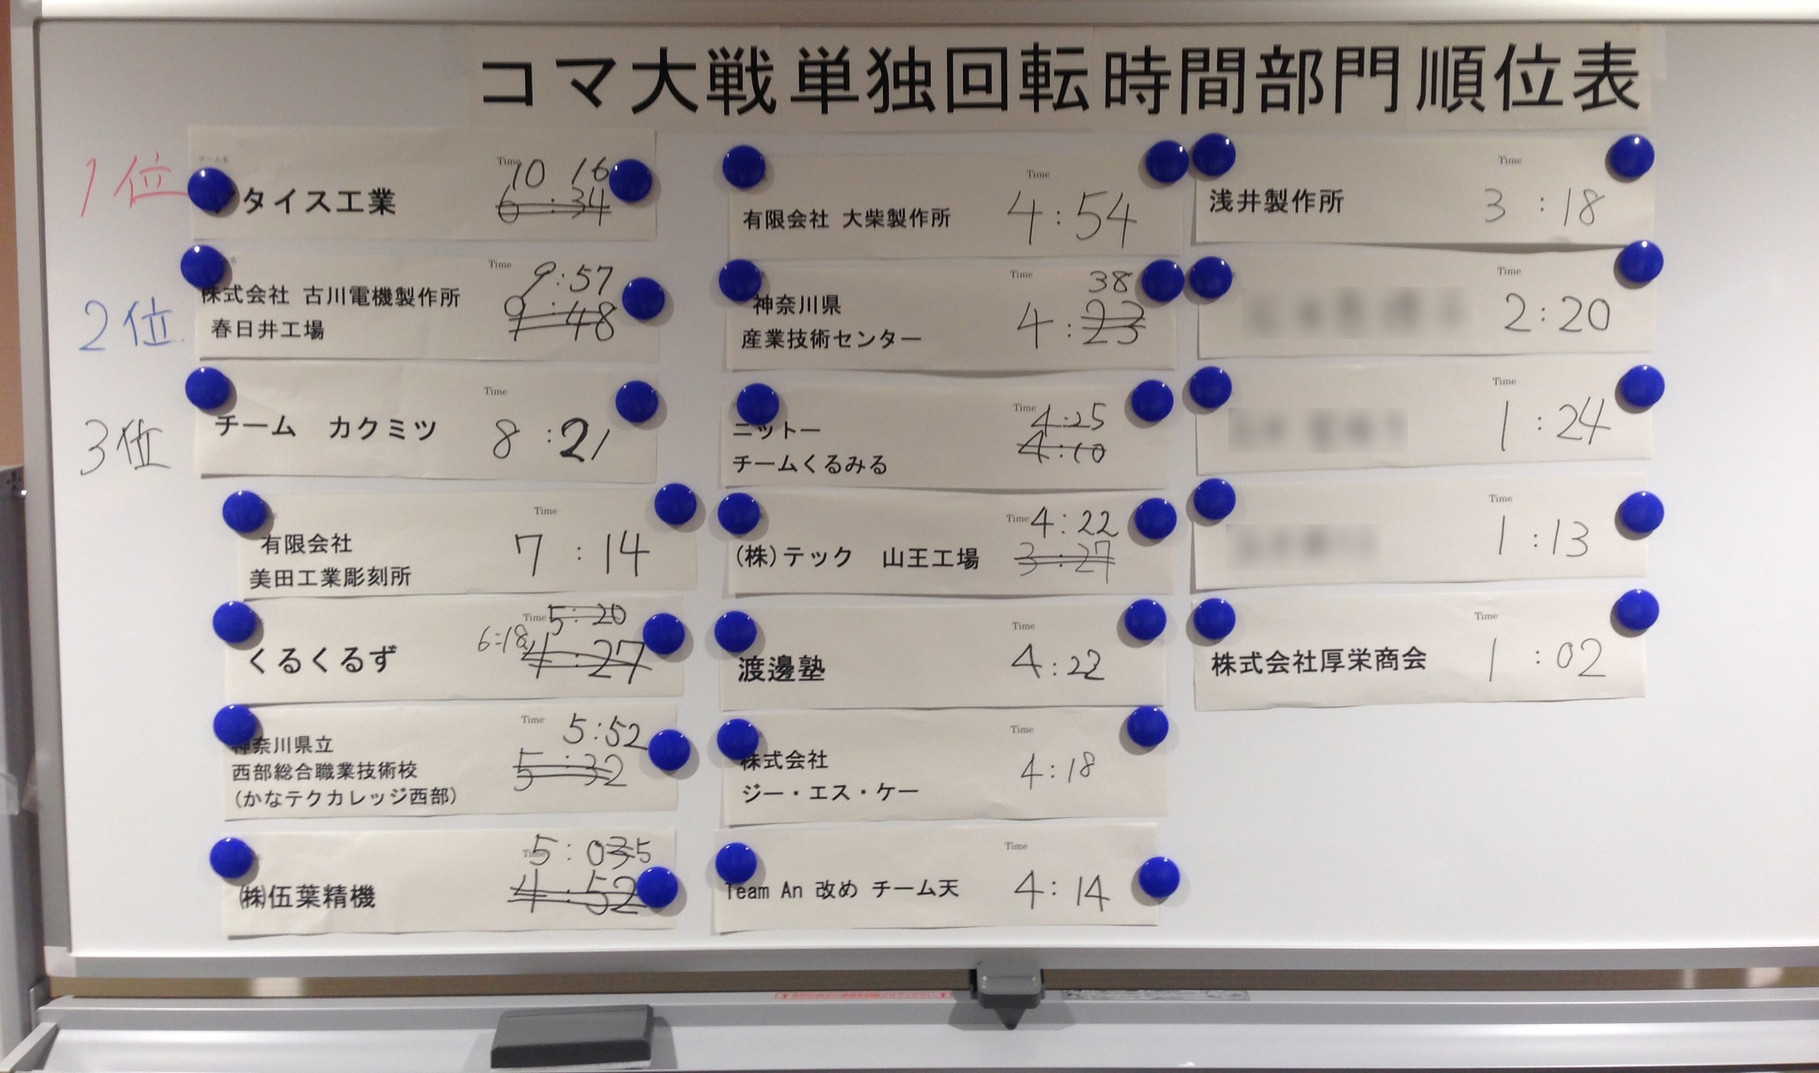 コマ大戦単独回転時間部門順位表
1位
タイス工業
Time
10 16
6:34
2位
株式会社 古川電機製作所
春日井工場
Time
9:57
9:48
3位
チーム カクミツ
Time
8:21
有限会社
美田工業彫刻所
Time
7:14
くるくるず
Time
5:20
6:18
4:27
神奈川県立
西部総合職業技術校
(かなテクカレッジ西部)
Time
5:52
5:32
㈱伍葉精機
Time
5:0335
4:52
有限会社 大柴製作所
Time
4:54
神奈川県
産業技術センター
Time
38
4:23
ニットー
チームくるみる
Time
4:25
4:10
(株)テック 山王工場
Time
4:22
3:27
渡邊塾
Time
4:22
株式会社
ジー・エス・ケー
Time
4:18
Team An 改め チーム天
Time
4:14
浅井製作所
Time
3:18
Time
2:20
Time
1:24
Time
1:13
株式会社厚栄商会
Time
1:02